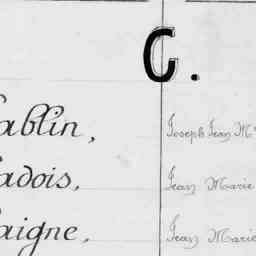 C.
ablin, Joseph Jean M
adois, Jean Marie
aigne, Jean Marie